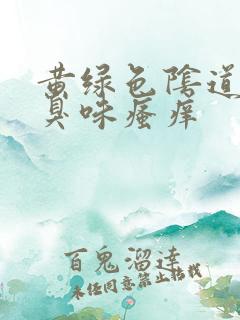 黄绿色阴道
臭味瘙痒
百鬼溜达
未经同意禁止搭载